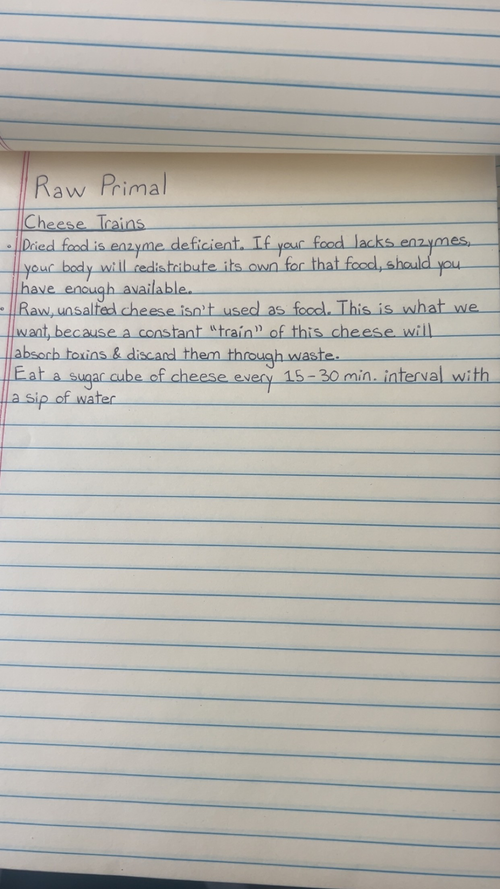 Raw Primal
Cheese Trains
• Dried food is enzyme deficient. If your food lacks enzymes,
your body will redistribute its own for that food, should you
have enough available.
• Raw, unsalted cheese isn't used as food. This is what we
want, because a constant "train" of this cheese will
absorb toxins & discard them through waste.
Eat a sugar cube of cheese every 15-30 min. interval with
a sip of water